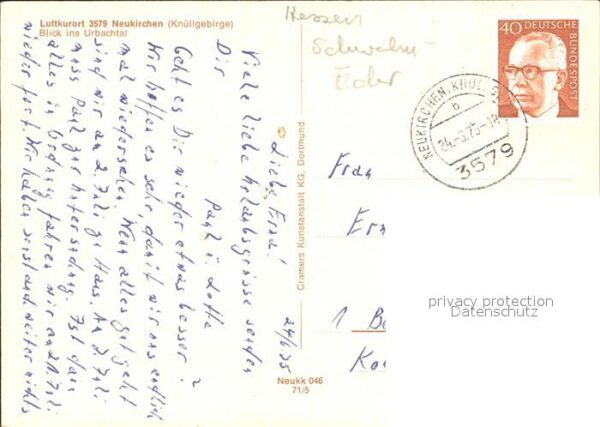 Luftkurort 3579 Neukirchen (Knüllgebirge)
Blick ins Urbachtal
Hessen
Schwalm-
Eder
40
DEUTSCHE
BUNDESPOST
NEUKIRCHEN, KNÜLLG.
b
24.-6.75-18
3579
24/6 75
Liebe Erna!
Viele liebe Urlaubsgrüsse senden
Dir
Paul u. Lotte
Geht es Dir wieder etwas besser?
Wir hoffen es sehr damit wir uns endlich
mal wiedersehen. Wenn alles gut geht
sind wir am 2. Juli zu Haus. Am 3. Juli
muss Paul zur Untersuchung. Ist dann
alles in Ordnung fahren wir am 21. Juli
wieder fort. Wir haben sonst weiter nichts
Cramers Kunstanstalt KG, Dortmund
Neukk 046
71/5
Frau
Ern
1 B
Ko
privacy protection
Datenschutz